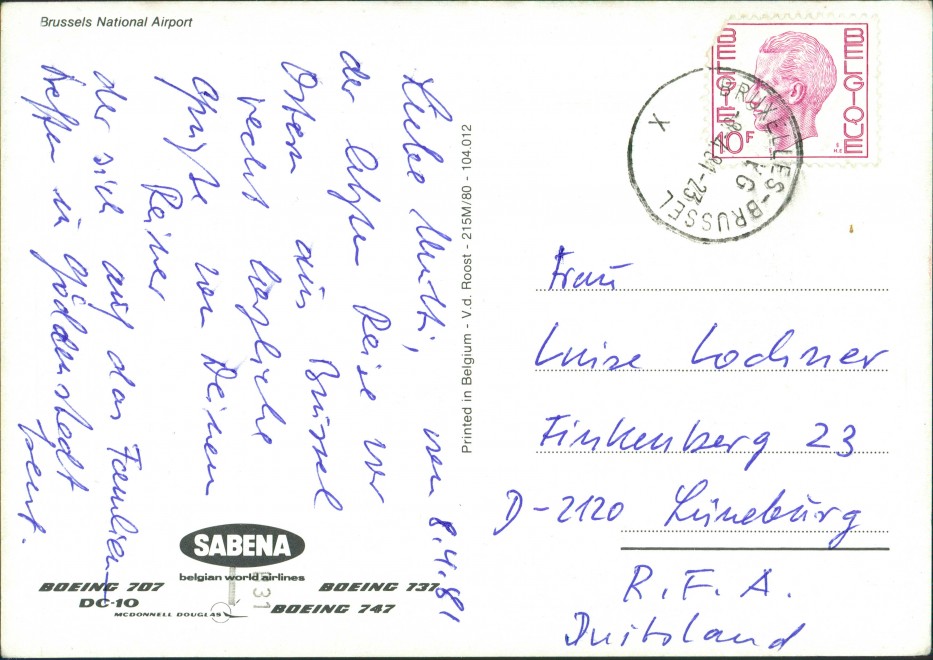 Brussels National Airport
BELGIE
BELGIQUE
10F
BRUXELLES-BRUSSEL
X
Liebe Mutti, von
der letzten Reise vor
Ostern aus Brüssel
recht herzliche
Grüße von Deinem
Reiner
der sich auf das Familien-
treffen in Göddenstedt
freut.
8.4.81
Printed in Belgium - V.d. Roost - 215M/80 - 104.012
Frau
Luise Lochner
Finkenberg 23
D-2120 Lüneburg
R.F.A.
Duitsland
SABENA
belgian world airlines
BOEING 707
BOEING 737
DC-10
MCDONNELL DOUGLAS
BOEING 747